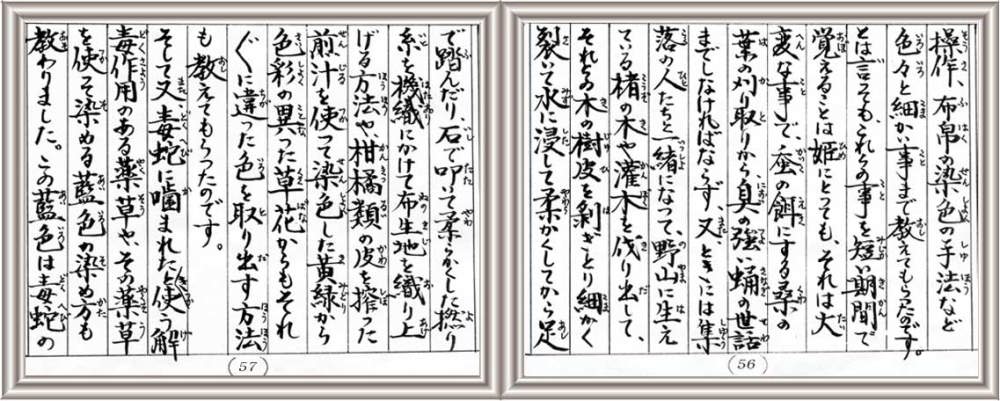 操作、布帛の染色の手法など
色々と細かい事まで教えてもらったのです。
とは言っても、これらの事を短い期間で
覚えることは姫にとっても、それは大
変な事で、蚕の餌にする桑の
葉の刈り取りから、臭の強い蛹の世話
までしなければならず、又、ときには集
落の人たちと一緒になって、野山に生え
ている楮の木や灌木を伐り出して、
それらの木の樹皮を剥ぎとり細かく
裂いて水に浸して柔かくしてから足
(56)
で踏んだり、石で叩いて柔らかくした撚り
糸を機織にかけて布生地を織り上
げる方法や、柑橘類の皮を搾った
煎汁を使って染色した黄緑から
色彩の異った草花からもそれ
ぐに違った色を取り出す方法
も教えてもらったのです。
そして又、毒蛇に噛まれたとき使う解
毒作用のある薬草や、その薬草
を使って染める藍色の染め方も
教わりました。この藍色は毒蛇の
(57)